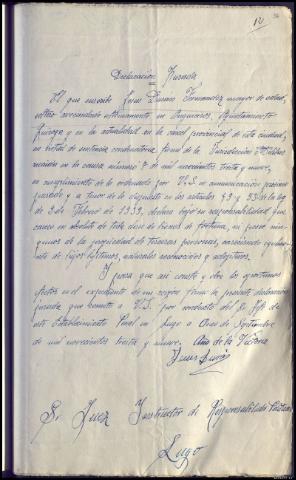 12
Declaración Jurada
El que suscribe Jesus Durán Fernandez mayor de edad,
soltero avecindado ultimamente en Ayuntamiento
Quiroga y en la actualidad en la cárcel provincial de esta ciudad,
en virtud de sentencia condenatoria firme de la Jurisdicción Militar
recaida en la causa número de mil novecientos treinta y nueve,
en cumplimiento de lo ordenado por V.S. en comunicación próximo
pasado y a tenor de lo dispuesto en los articulos 49 y 53 de la ley
de 9 de Febrero de 1939, declara bajo su responsabilidad que
carece en absoluto de toda clase de bienes de fortuna, ni posee nin-
gunos de la propiedad de terceras personas, careciendo igualmen-
te de hijos legítimos, naturales reconocidos y adoptivos.
Y para que asi conste y obre los oportunos
efectos en el expediente de su cargo firma la presente declaración
jurada que remite a V.S. por conducto del Sr. Jefe de
este Establecimiento Penal en Lugo a Once de Septiembre
de mil novecientos treinta y nueve. Año de la Victoria
Jesus Durán
Sr. Juez Instructor de Responsabilidades Políticas
Lugo